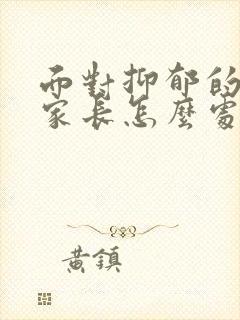 而對抑郁的
家長怎麼處
黃鎮